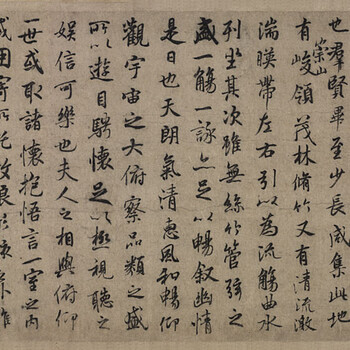 也羣賢畢至少長咸集此地
崇山
有峻領茂林脩竹又有清流激
湍暎帶左右引以為流觴曲水
列坐其次雖無絲竹管弦之
盛一觴一詠亦足以暢叙幽情
是日也天朗氣清惠風和暢仰
觀宇宙之大俯察品類之盛
所以遊目騁懷足以極視聽之
娛信可樂也夫人之相與俯仰
一世或取諸懷抱悟言一室之內
或因寄所託放浪形骸之外雖